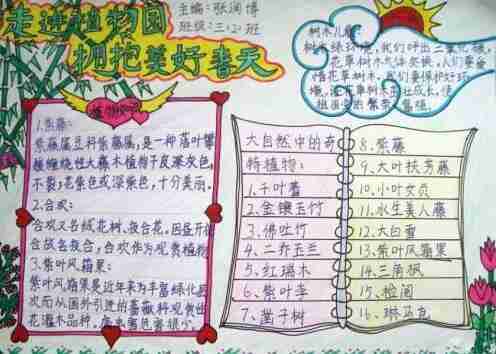 走进植物园
拥抱美好春天
主编：张润博
班级：三·2班
树木儿歌：
树木绿环境，我们呼出二氧化碳，
花草树木气体交换，人们要爱
惜花草树木，我们要保护好环
境，
祖国的繁荣富强。
植物知识
1.紫藤：
紫藤属豆科紫藤属，是一种落叶攀
援缠绕性大藤木植物干皮深灰色，
不裂；花紫色或深紫色，十分美丽。
2.合欢：
合欢又名绒花树、夜合花。因昼开夜
合故名夜合，合欢作为观赏植物
3.紫叶风箱果：
紫叶风箱果是近年来为丰富绿化层
次而从国外引进的蔷薇科观赏
花灌木品种。
大自然中的奇
特植物：
1.千叶蓍
2.金镶玉竹
3.佛吐竹
4.二乔玉兰
5.红瑞木
6.紫叶李
7.凿子树
8.紫藤
9.大叶扶芳藤
10.小叶女贞
11.水生美人蕉
12.大白
13.紫叶风箱果
14.三角枫
15.
16.